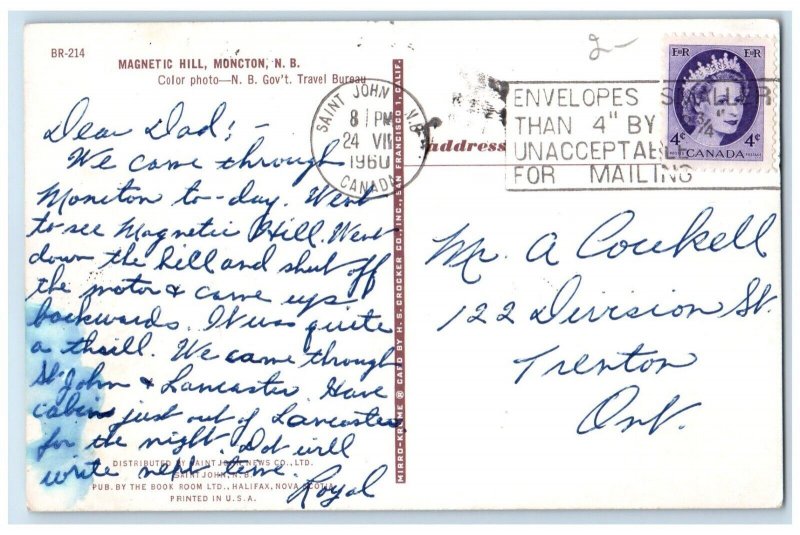 BR-214
MAGNETIC HILL, MONCTON, N. B.
Color photo—N. B. Gov't. Travel Bureau
Dear Dad! -
We came through
Moncton to-day. Went
to see Magnetic Hill. Went
down the hill and shut off
the motor & came up
backwards. It was quite
a thrill. We came through
St. John & Lancaster. Have
cabin just out of Lancaster
for the night. Dot will
write next time.
Royal
DISTRIBUTED BY SAINT JOHN NEWS CO., LTD.
SAINT JOHN, N. B.
PUB. BY THE BOOK ROOM LTD., HALIFAX, NOVA SCOTIA
PRINTED IN U. S. A.
MIRRO-KROME ® CARD BY H. S. CROCKER CO., INC., SAN FRANCISCO 1, CALIF.
SAINT JOHN N.B.
8 PM
24 VII
1960
CANADA
Address
ENVELOPES SMALLER
THAN 4" BY
UNACCEPTABLE
FOR MAILING
EIIR EIIR
4¢ 4¢
CANADA
Mr. A Coukell
122 Division St.
Trenton
Ont.